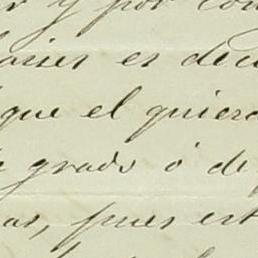 y por con
es deci
que el quiera
grado ó de
as, pues est